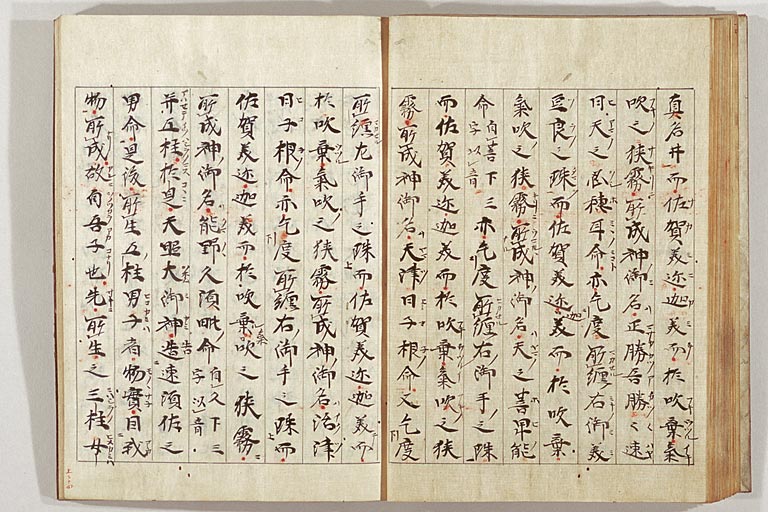 真名井而佐賀美迩迦美而於吹棄氣
吹之狭霧所成神御名正勝吾勝々速
日天之忍穂耳命亦乞度所纒右御美
豆良之珠而佐賀美迩迦美而於吹棄
氣吹之狭霧所成神御名天之菩卑能
命自菩下三字以音亦乞度所纒右御手之珠
而佐賀美迩迦美而於吹棄氣吹之狭
霧所成神御名天津日子根命又乞度
所纒左御手之珠而佐賀美迩迦美而
於吹棄氣吹之狭霧所成神御名活津
日子根命亦乞度所纒右御手之珠而
佐賀美迩迦美而於吹棄吹之狭霧
所成神御名熊野久須毗命自久下三字以音
并五柱於是天照大御神告速須佐之
男命是後所生五柱男子者物實因我
物所成故自吾子也先所生之三柱女